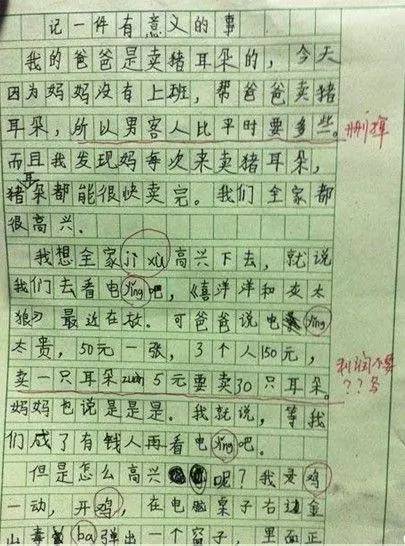 记一件有意义的事
我的爸爸是卖猪耳朵的，今天
因为妈妈没有上班，帮爸爸卖猪
耳朵，所以男客人比平时要多些。
删掉
而且我发现妈每次来卖猪耳朵，
猪耳朵都能很快卖完。我们全家都
很高兴。
我想全家jì xù高兴下去，就说
我们去看电yǐng吧，《喜洋洋和灰太
狼》最近在放。可爸爸说电yǐng
太贵，50元一张，3个人150元，
卖一只耳朵zuàn5元要卖30只耳朵。
利润不算
??多
妈妈也说是是是。我就说，等我
们成了有钱人再看电yǐng吧。
但是怎么高兴呢？我灵鸡
一动，开鸡，在电脑桌子右边金
山毒bà弹出一个窗子，里面正